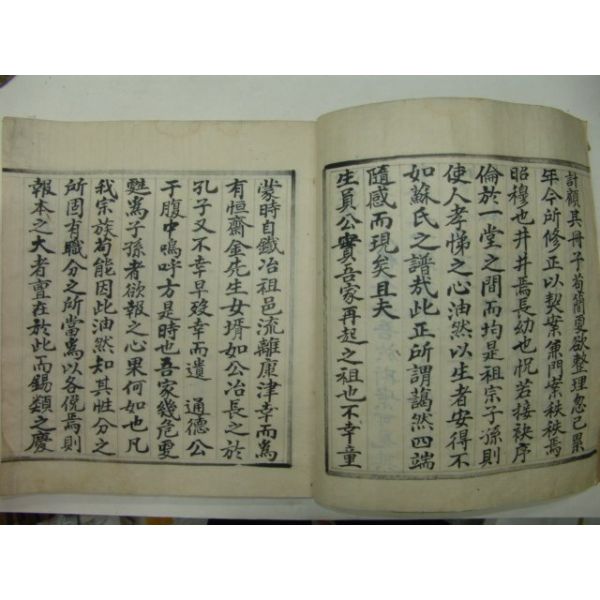 計顧其冊子荀簡更欲整理忽已累
年今所修正以契案兼門案秩秩焉
昭穆也井井焉長幼也怳若接袂序
倫於一堂之間而均是祖宗子孫則
使人孝悌之心油然以生者安得不
如蘇氏之譜哉此正所謂藹然四端
隨感而現矣且夫
生員公實吾家再起之祖也不幸童
蒙時自鐵冶祖邑流離康津幸而爲
有恒齋金先生女壻如公冶長之於
孔子又不幸早歿幸而遺 通德公
于腹中嗚呼方是時也吾家幾危更
甦爲子孫者欲報之心果何如也凡
我宗族苟能因此油然知其性分之
所固有職分之所當爲以各俛焉則
報本之大者亶在於此而錫類之慶